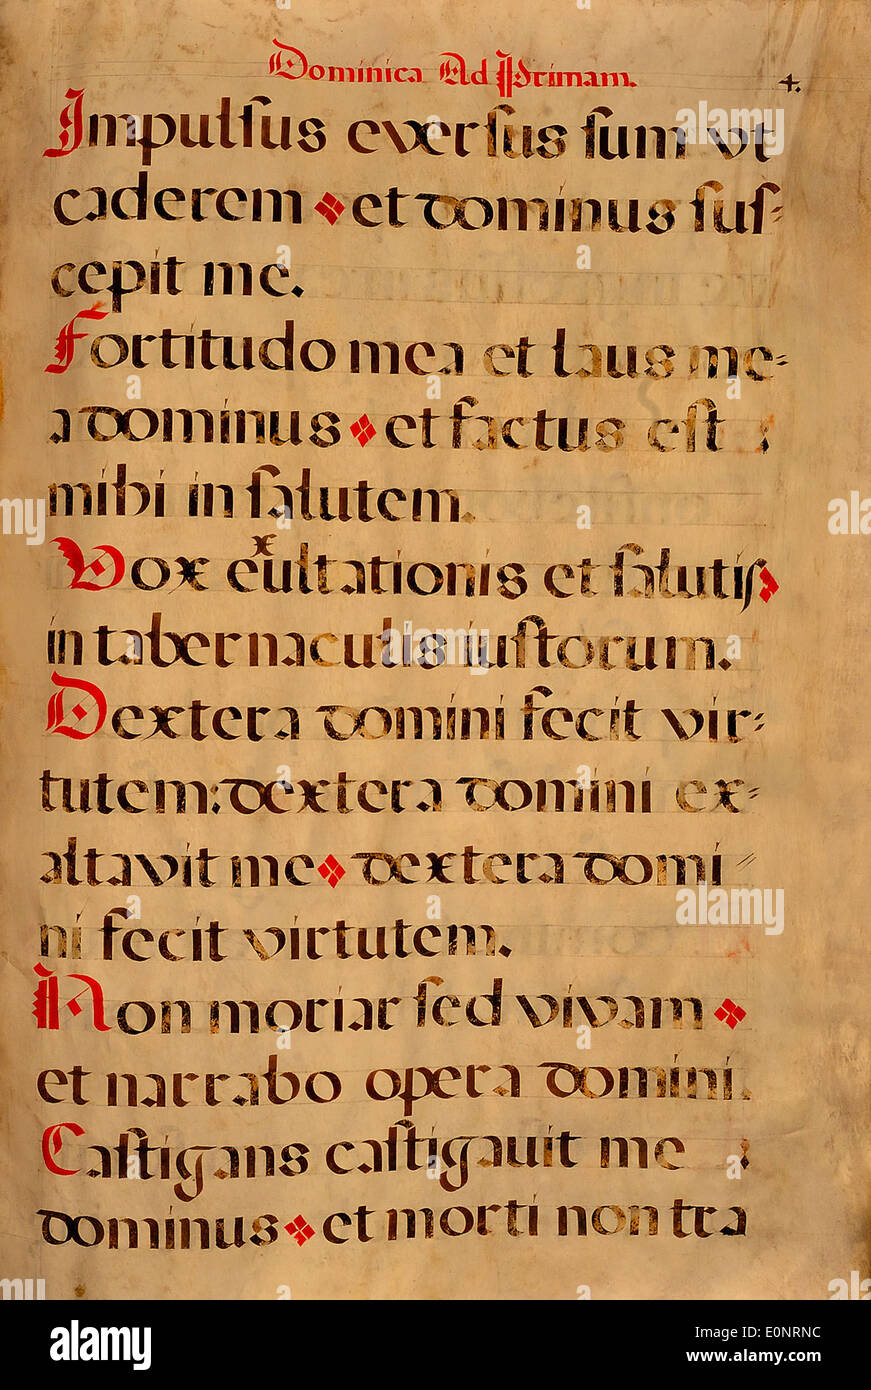 Dominica Ad Primam. 4.
Impulſus everſus ſum vt
caderem et dominus ſuſ-
cepit me.
Fortitudo mea et laus me-
a dominus et factus eſt :
mihi in ſalutem.
Vox exultationis et ſalutis
in tabernaculis iuſtorum.
Dextera domini fecit vir-
tutem: dextera domini ex-
altavit me dextera domi-
ni fecit virtutem.
Non moriar ſed vivam
et narrabo opera domini.
Caſtigans caſtigauit me :
dominus et morti non tra
alamy
Image ID: E0NRNC
www.alamy.com